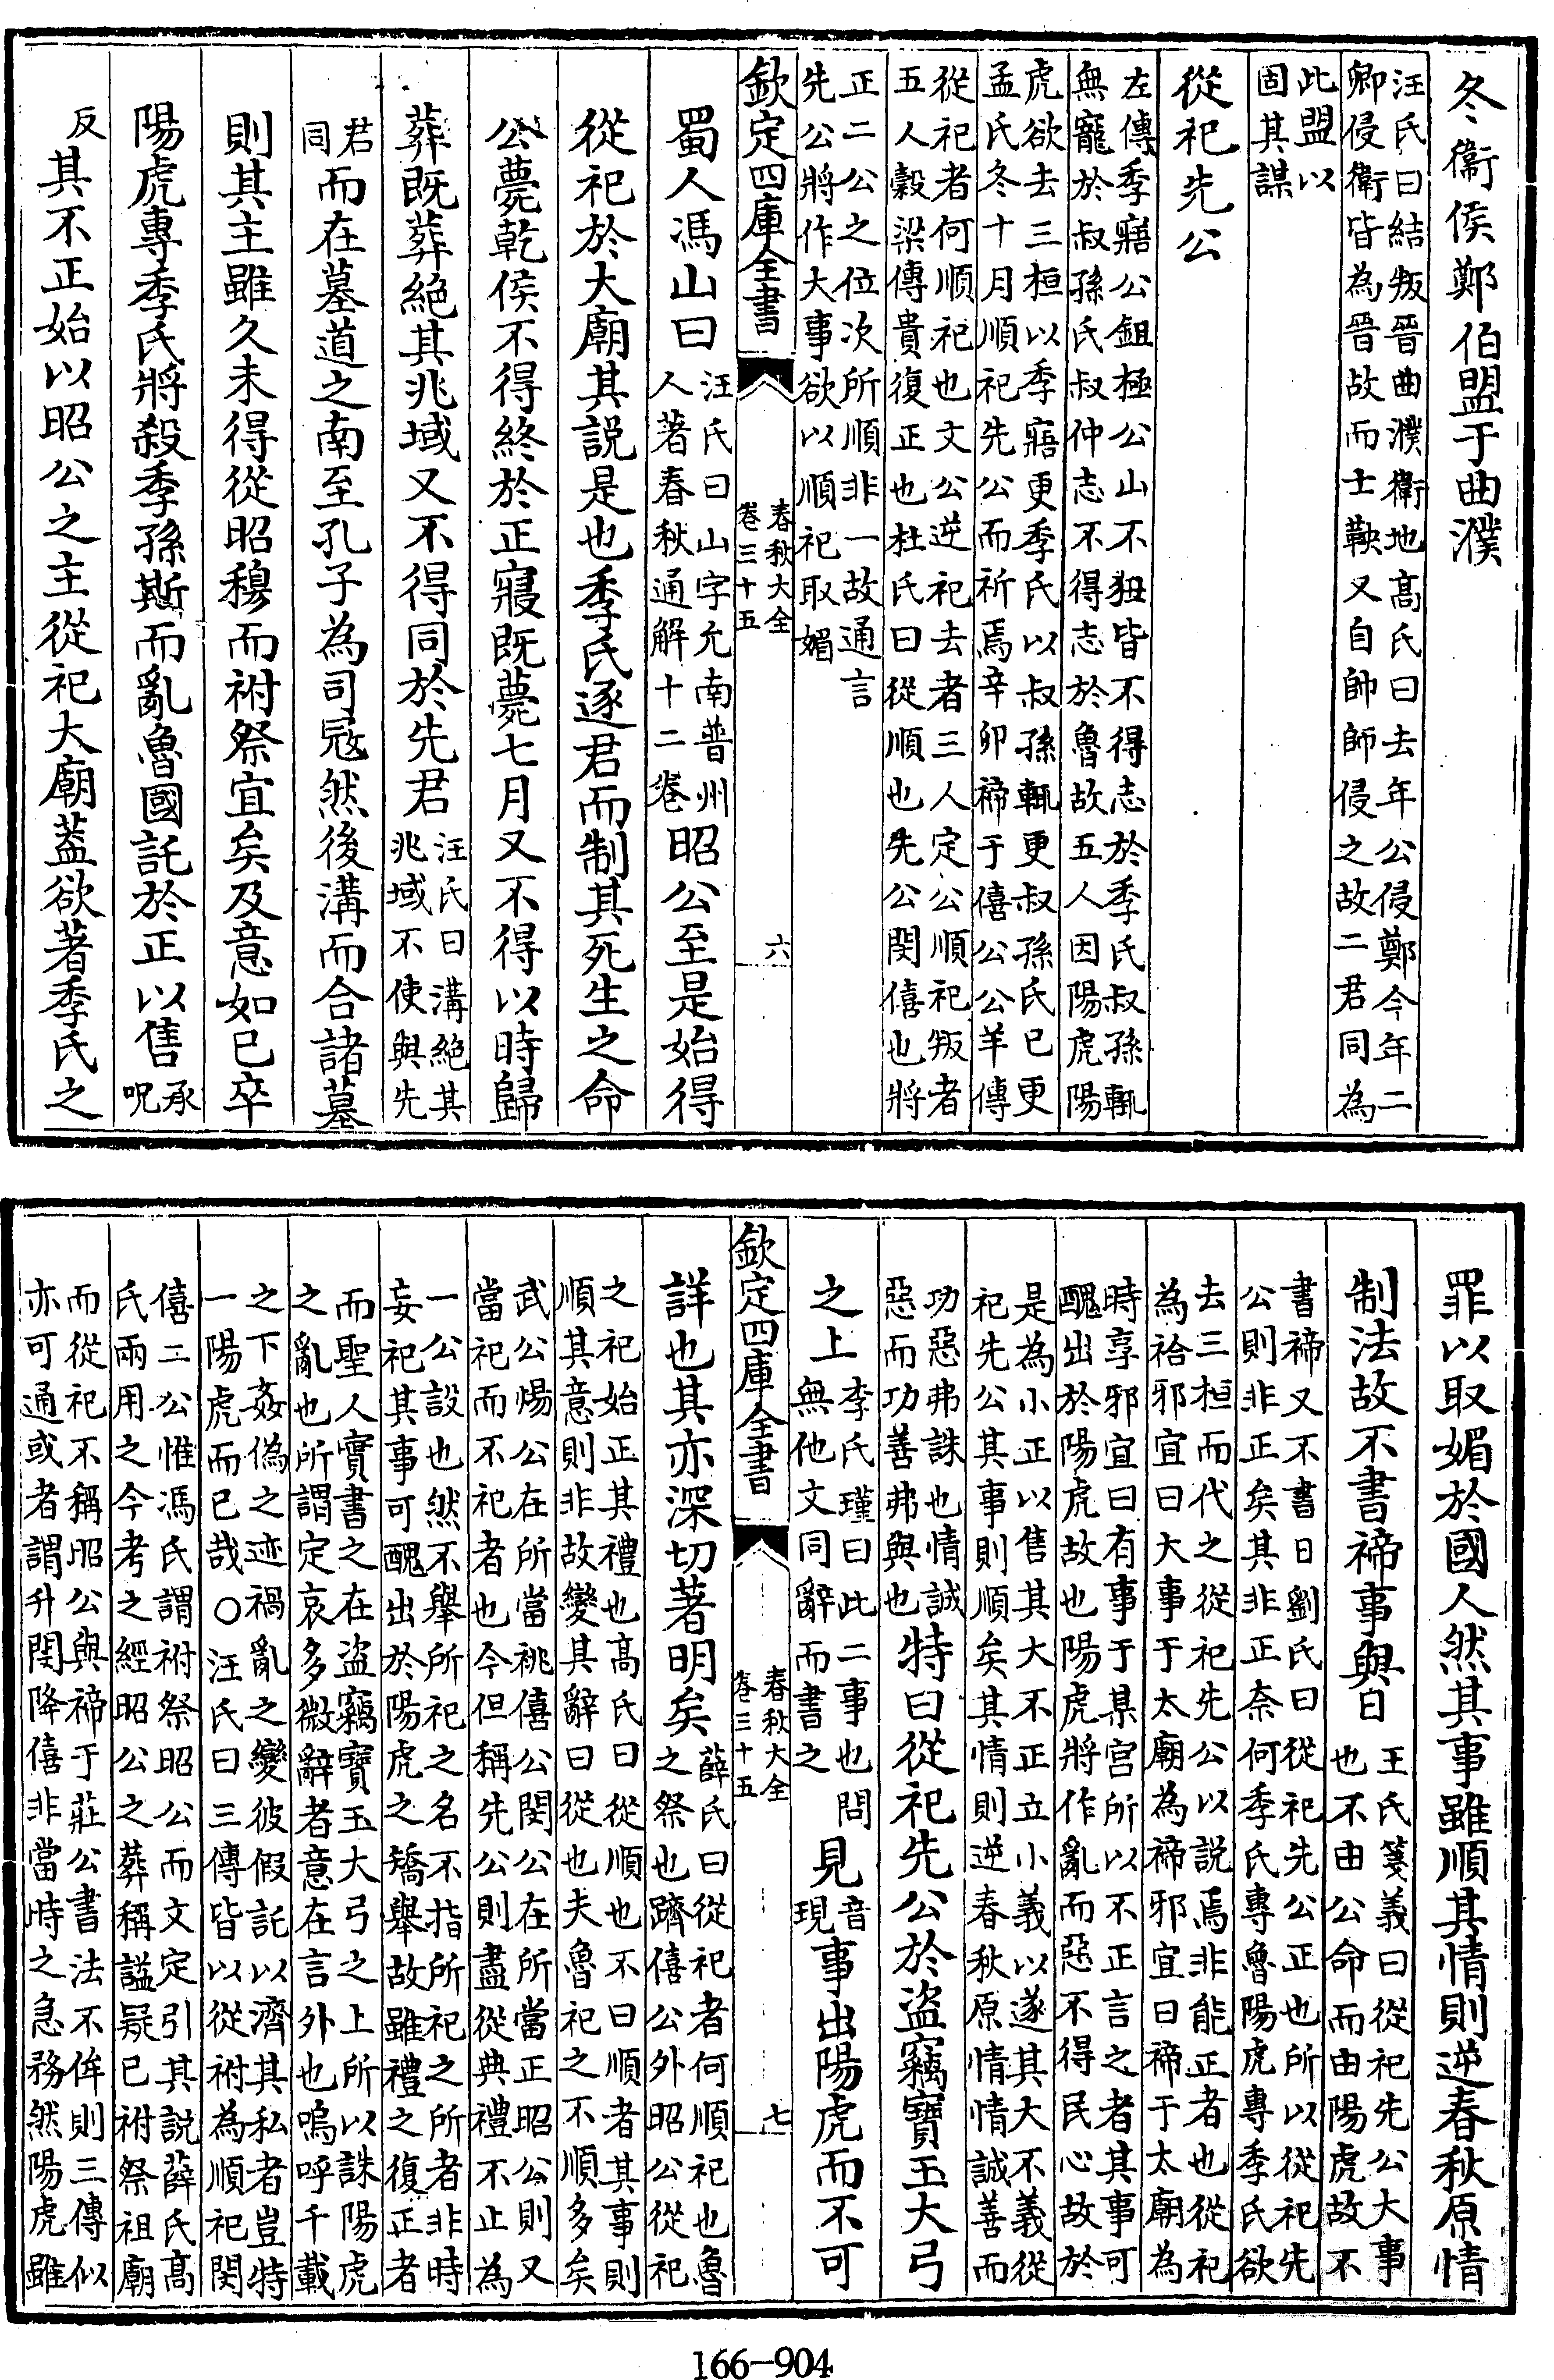 冬衛侯鄭伯盟于曲濮
汪氏曰結叛晉曲濮衛地髙氏曰去年公侵鄭今年二
卿侵衛皆為晉故而士鞅又自帥師侵之故二君同為
此盟以
固其謀
從祀先公
左傳季寤公鉏極公山不狃皆不得志於季氏叔孫輒
無寵於叔孫氏叔仲志不得志於魯故五人因陽虎陽
虎欲去三桓以季寤更季氏以叔孫輒更叔孫氏已更
孟氏冬十月順祀先公而祈焉辛卯禘于僖公公羊傳
從祀者何順祀也文公逆祀去者三人定公順祀叛者
五人穀梁傳貴復正也杜氏曰從順也先公閔僖也將
正二公之位次所順非一故通言
先公將作大事欲以順祀取媚
欽定四庫全書
春秋大全
卷三十五
六
蜀人馮山曰
汪氏曰山字允南普州
人著春秋通解十二卷
昭公至是始得
從祀於大廟其説是也季氏逐君而制其死生之命
公薨乾侯不得終於正寢既薨七月又不得以時歸
葬既葬絶其兆域又不得同於先君
汪氏曰溝絶其
兆域不使與先
君
同
而在墓道之南至孔子為司冦然後溝而合諸墓
則其主雖久未得從昭穆而祔祭宜矣及意如已卒
陽虎專季氏將殺季孫斯而亂魯國託於正以售
承
呪
反
其不正始以昭公之主從祀大廟葢欲著季氏之
罪以取媚於國人然其事雖順其情則逆春秋原情
制法故不書禘事與日
王氏箋義曰從祀先公大事
也不由公命而由陽虎故不
書禘又不書日劉氏曰從祀先公正也所以從祀先
公則非正矣其非正奈何季氏專魯陽虎專季氏欲
去三桓而代之從祀先公以説焉非能正者也從祀
為祫邪宜曰大事于太廟為禘邪宜曰禘于太廟為
時享邪宜曰有事于某宫所以不正言之者其事可
醜出於陽虎故也陽虎將作亂而惡不得民心故於
是為小正以售其大不正立小義以遂其大不義從
祀先公其事則順矣其情則逆春秋原情情誠善而
功惡弗誅也情誠
惡而功善弗與也
特曰從祀先公於盜竊寶玉大弓
之上
李氏瑾曰此二事也問
無他文同辭而書之
見
音
現
事出陽虎而不可
欽定四庫全書
春秋大全
卷三十五
七
詳也其亦深切著明矣
薛氏曰從祀者何順祀也魯
之祭也躋僖公外昭公從祀
之祀始正其禮也髙氏曰從順也不曰順者其事則
順其意則非故變其辭曰從也夫魯祀之不順多矣
武公煬公在所當祧僖公閔公在所當正昭公則又
當祀而不祀者也今但稱先公則盡從典禮不止為
一公設也然不舉所祀之名不指所祀之所者非時
妄祀其事可醜出於陽虎之矯舉故雖禮之復正者
而聖人實書之在盜竊寶玉大弓之上所以誅陽虎
之亂也所謂定哀多微辭者意在言外也嗚呼千載
之下姦偽之迹禍亂之變彼假託以濟其私者豈特
一陽虎而已哉○汪氏曰三傳皆以從祔為順祀閔
僖二公惟馮氏謂祔祭昭公而文定引其説薛氏髙
氏兩用之今考之經昭公之葬稱諡疑已祔祭祖廟
而從祀不稱昭公與禘于莊公書法不侔則三傳似
亦可通或者謂升閔降僖非當時之急務然陽虎雖
166-904